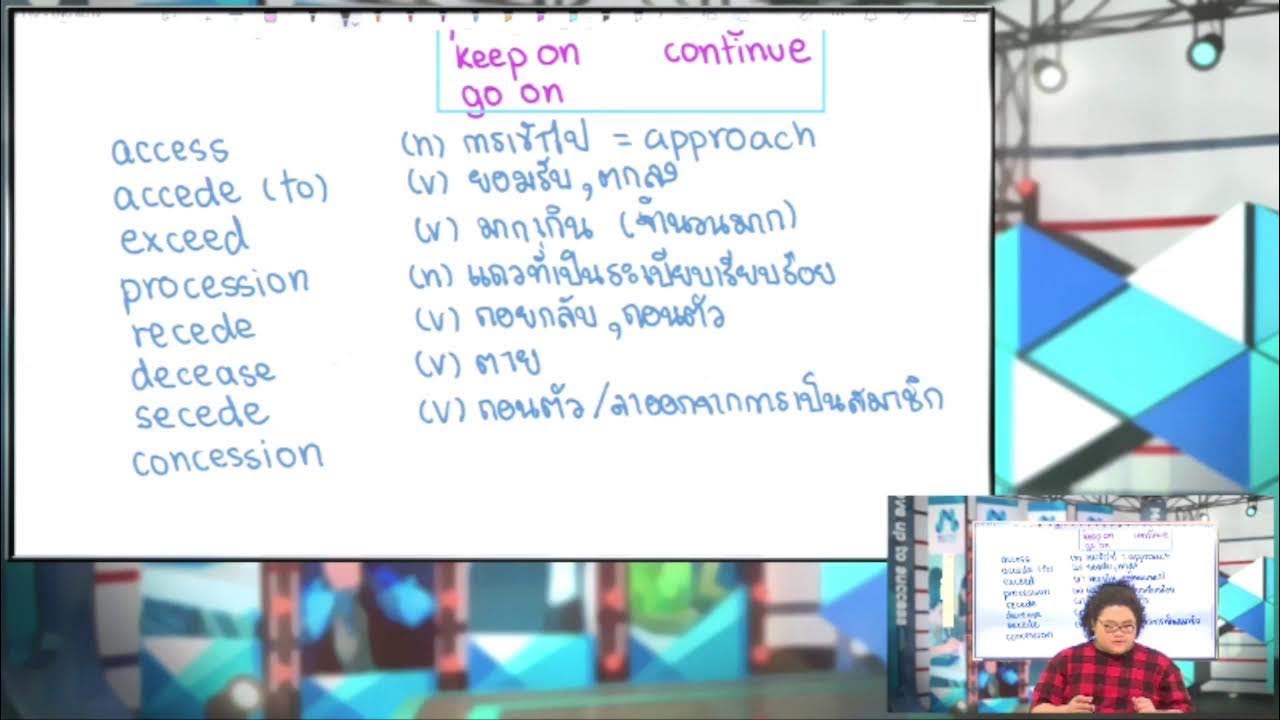 keep on continue
go on
access (n) การเข้าไป = approach
accede (to) (v) ยอมรับ, ตกลง
exceed (v) มากเกิน (จำนวนมาก)
procession (n) แถวที่เป็นระเบียบเรียบร้อย
recede (v) ถอยกลับ, ถอนตัว
decease (v) ตาย
secede (v) ถอนตัว / ลาออกจากการเป็นสมาชิก
concession
ove up to success
keep on continue
go on
access (n) การเข้าไป = approach
accede (to)
exceed
procession
recede
decease
secede
concession